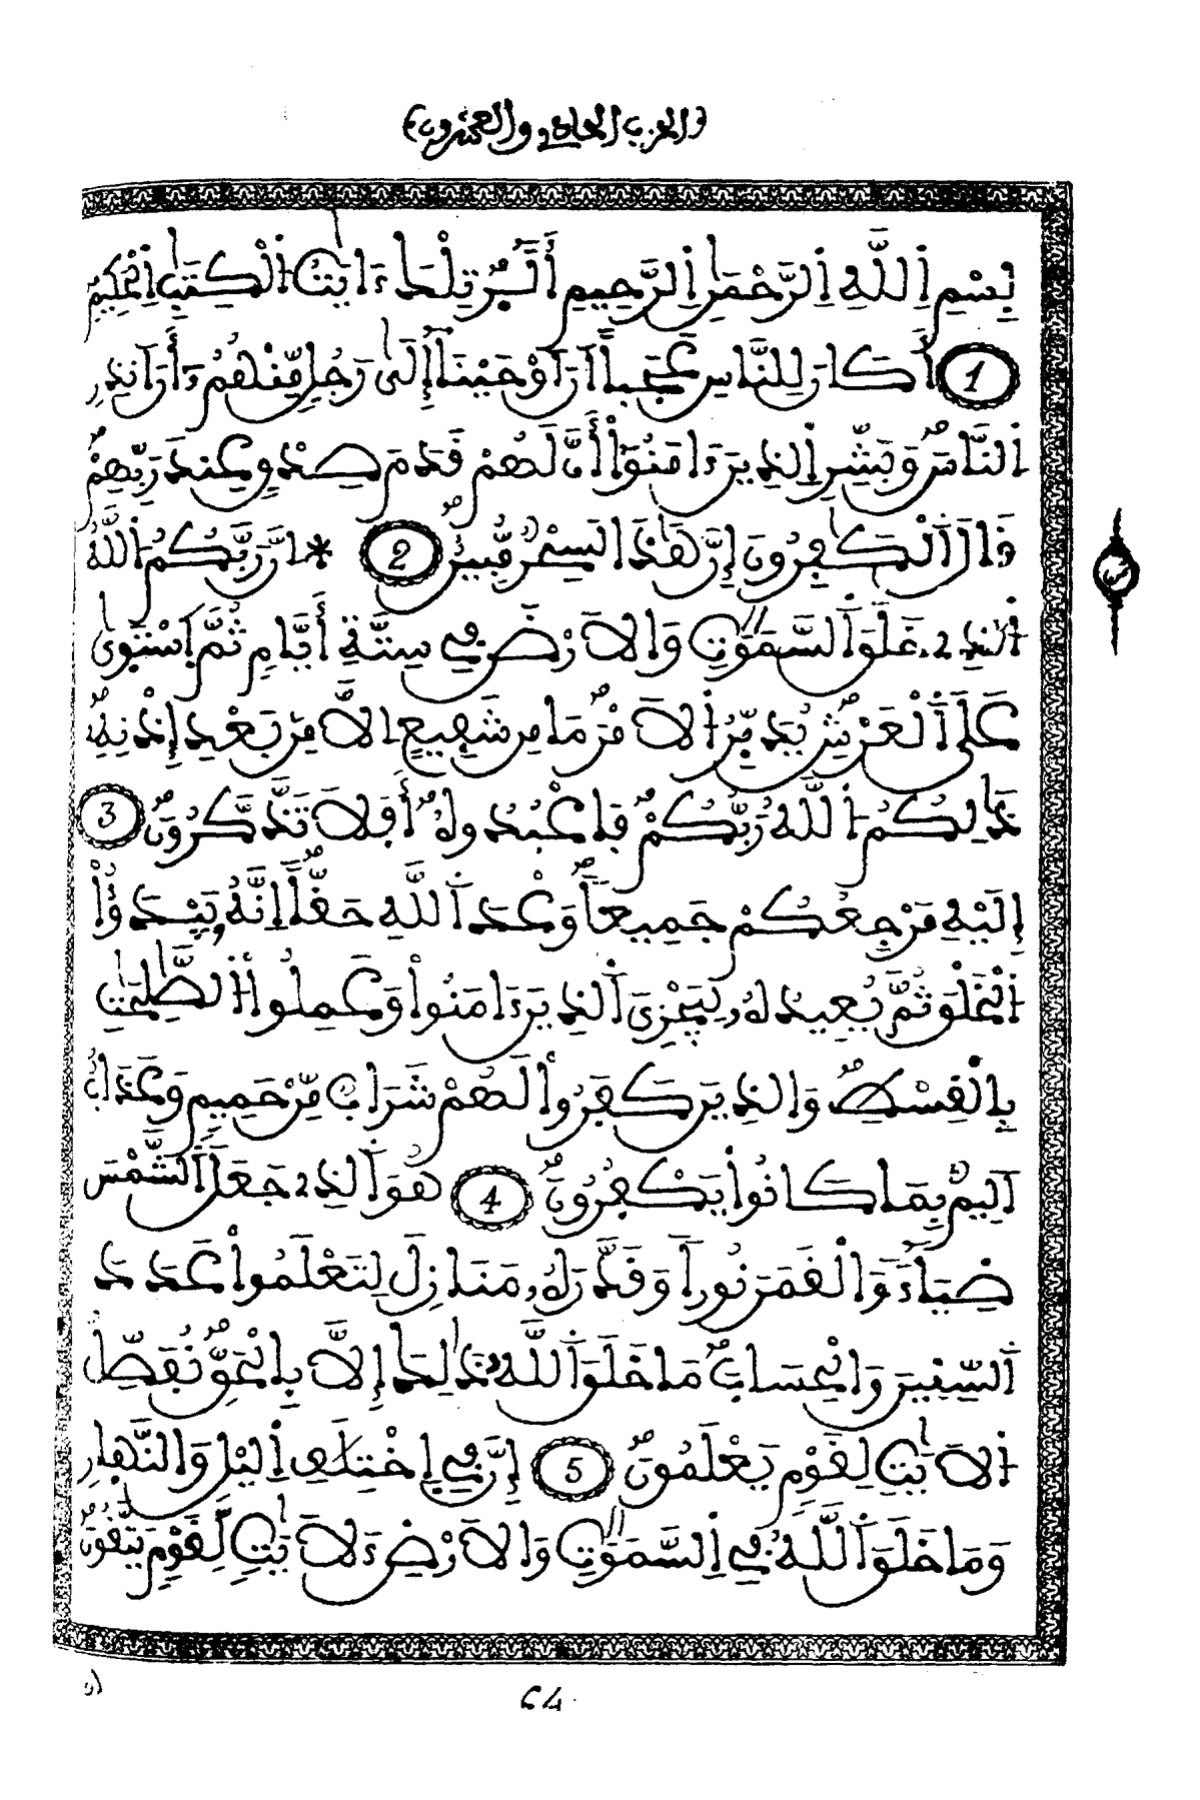 (الحزب الحادي والعشرون)
بِسْمِ اِللَّهِ اِلرَّحْمَٰنِ اِلرَّحِيمِ أَلَٓرۖ تِلْكَ ءَايَٰتُ اُلْكِتَٰبِ اِلْحَكِيمِ
1 أَكَانَ لِلنَّاسِ عَجَباً اَنَ اَوْحَيْنَآ إِلَىٰ رَجُلٖ مِّنْهُمُۥٓ أَنَ اَنذِرِ
اِلنَّاسَۖ وَبَشِّرِ اِلذِينَ ءَامَنُوٓاْ أَنَّ لَهُمْ قَدَمَ صِدْقٍ عِندَ رَبِّهِمْۖ
قَالَ اَلْكَٰفِرُونَ إِنَّ هَٰذَا لَسِحْرٞ مُّبِينٌۖ 2 * اِنَّ رَبَّكُمُ اُللَّهُ
اُلذِے خَلَقَ اَلسَّمَٰوَٰتِ وَالَارْضَ فِے سِتَّةِ أَيَّامٖ ثُمَّ اَسْتَوَىٰ
عَلَى اَلْعَرْشِۖ يُدَبِّرُ اُلَامْرَۖ مَا مِن شَفِيعٍ اِلَّا مِنۢ بَعْدِ إِذْنِهِۦۖ
ذَٰلِكُمُ اُللَّهُ رَبُّكُمْۖ فَاعْبُدُوهُۖ أَفَلَا تَذَّكَّرُونَۖ 3
إِلَيْهِ مَرْجِعُكُمْ جَمِيعاًۖ وَعْدَ اَللَّهِ حَقّاًۖ إِنَّهُۥ يَبْدَؤُاْ
اُلْخَلْقَ ثُمَّ يُعِيدُهُۥ لِيَجْزِيَ اَلذِينَ ءَامَنُواْ وَعَمِلُواْ اُلصَّٰلِحَٰتِ
بِالْقِسْطِۖ وَالذِينَ كَفَرُواْ لَهُمْ شَرَابٞ مِّنْ حَمِيمٖ وَعَذَابٌ
اَلِيمُۢ بِمَا كَانُواْ يَكْفُرُونَۖ 4 هُوَ اَلذِے جَعَلَ اَلشَّمْسَ
ضِيَآءٗ وَالْقَمَرَ نُوراٗ وَقَدَّرَهُۥ مَنَازِلَ لِتَعْلَمُواْ عَدَدَ
اَلسِّنِينَ وَالْحِسَابَۖ مَا خَلَقَ اَللَّهُ ذَٰلِكَ إِلَّا بِالْحَقِّۖ نُفَصِّلُ
اُلَايَٰتِ لِقَوْمٖ يَعْلَمُونَۖ 5 إِنَّ فِے اِخْتِلَٰفِ اِليْلِ وَالنَّهارِ
وَمَا خَلَقَ اَللَّهُ فِے اِلسَّمَٰوَٰتِ وَالَارْضِ ءَلَايَٰتٖ لِّقَوْمٖ يَتَّقُونَۖ
64